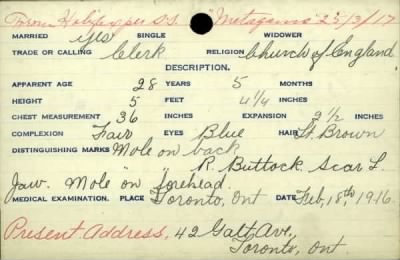 From Halifax per S.S. "Metagama" 25/3/17
MARRIED yes SINGLE WIDOWER
TRADE OR CALLING Clerk RELIGION Church of England
DESCRIPTION.
APPARENT AGE 28 YEARS 5 MONTHS
HEIGHT 5 FEET 4 1/4 INCHES
CHEST MEASUREMENT 36 INCHES EXPANSION 2 1/2 INCHES
COMPLEXION Fair EYES Blue HAIR Lt. Brown
DISTINGUISHING MARKS Mole on back
R. Buttock. Scar L.
Jaw. Mole on forehead.
MEDICAL EXAMINATION. PLACE Toronto, Ont DATE Feb, 18th, 1916.
Present Address, 42 Galt Ave.,
Toronto, Ont.